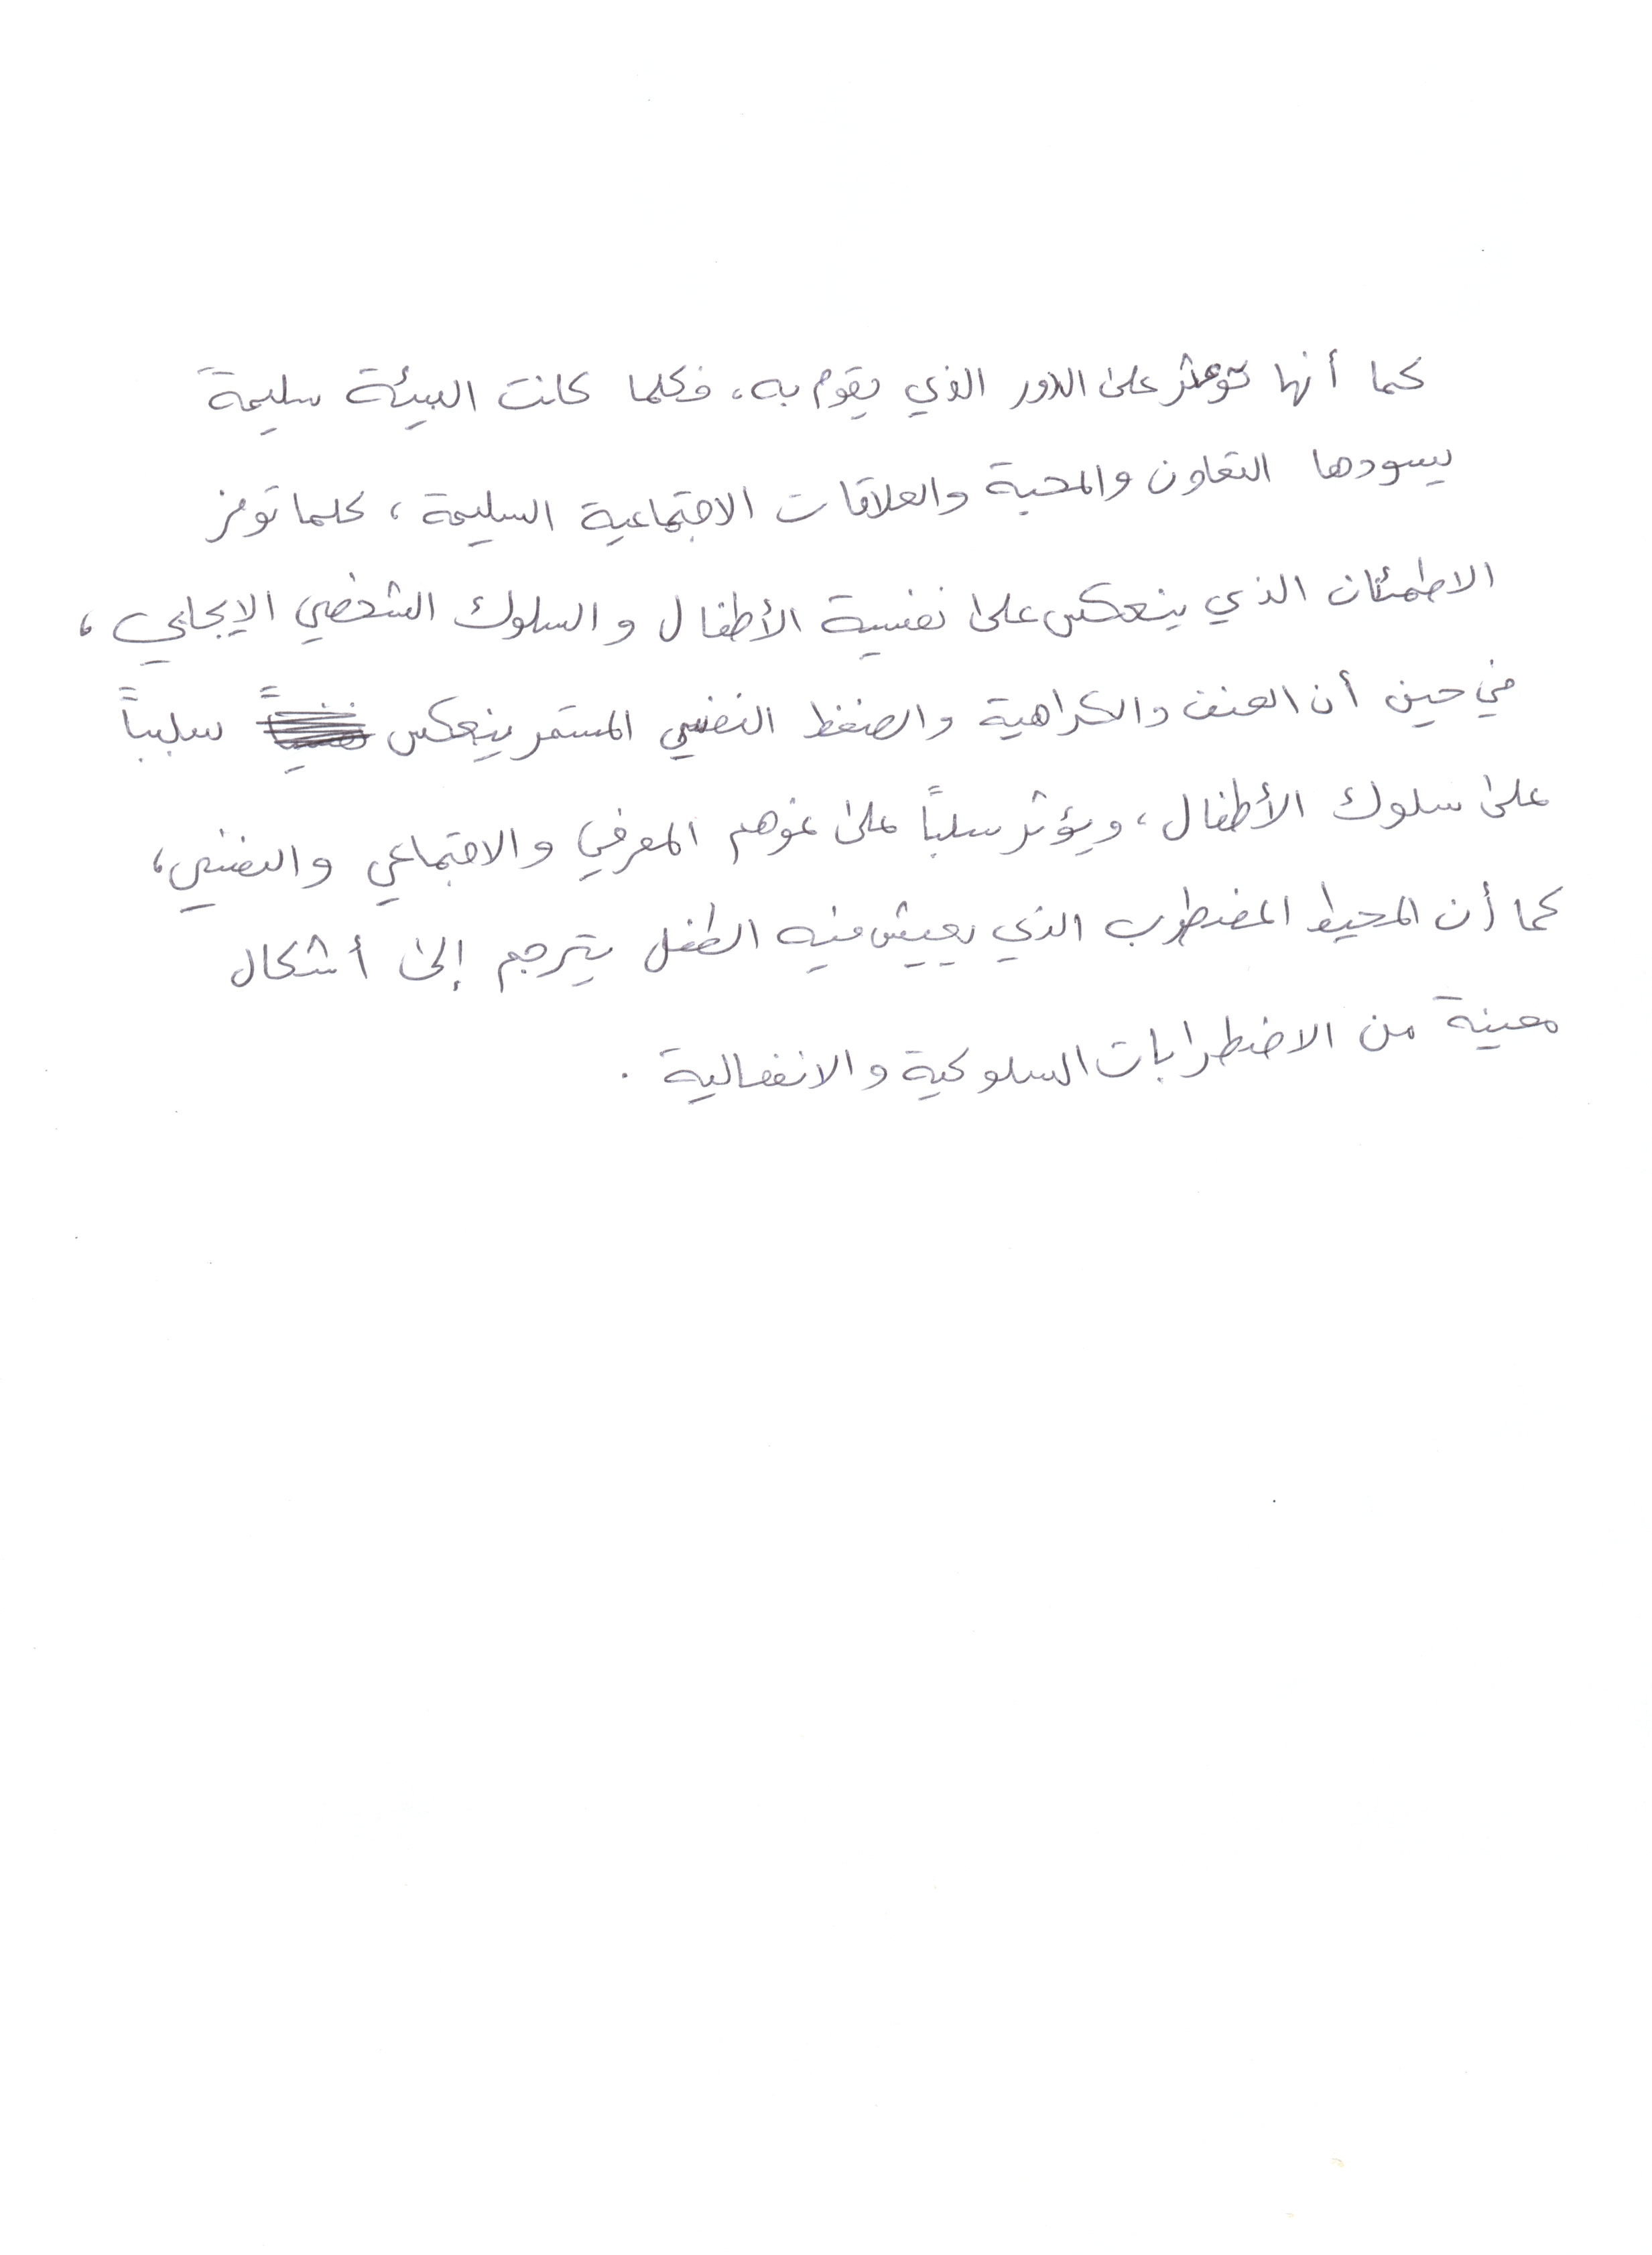 كما أنها تؤثر على الدور الذي يقوم به، فكلما كانت البيئة سليمة
يسودها التعاون والمحبة والعلاقات الاجتماعية السليمة، كلما توفر
الاطمئنان الذي ينعكس على نفسية الأطفال والسلوك الشخصي الإيجابي،
في حين أن العنف والكراهية والضغط النفسي المستمر ينعكس سلبياً
على سلوك الأطفال، ويؤثر سلباً على نموهم المعرفي والاجتماعي والنفسي،
كما أن المحيط المضطرب الذي يعيش فيه الطفل يترجم إلى أشكال
معينة من الاضطرابات السلوكية والانفعالية .